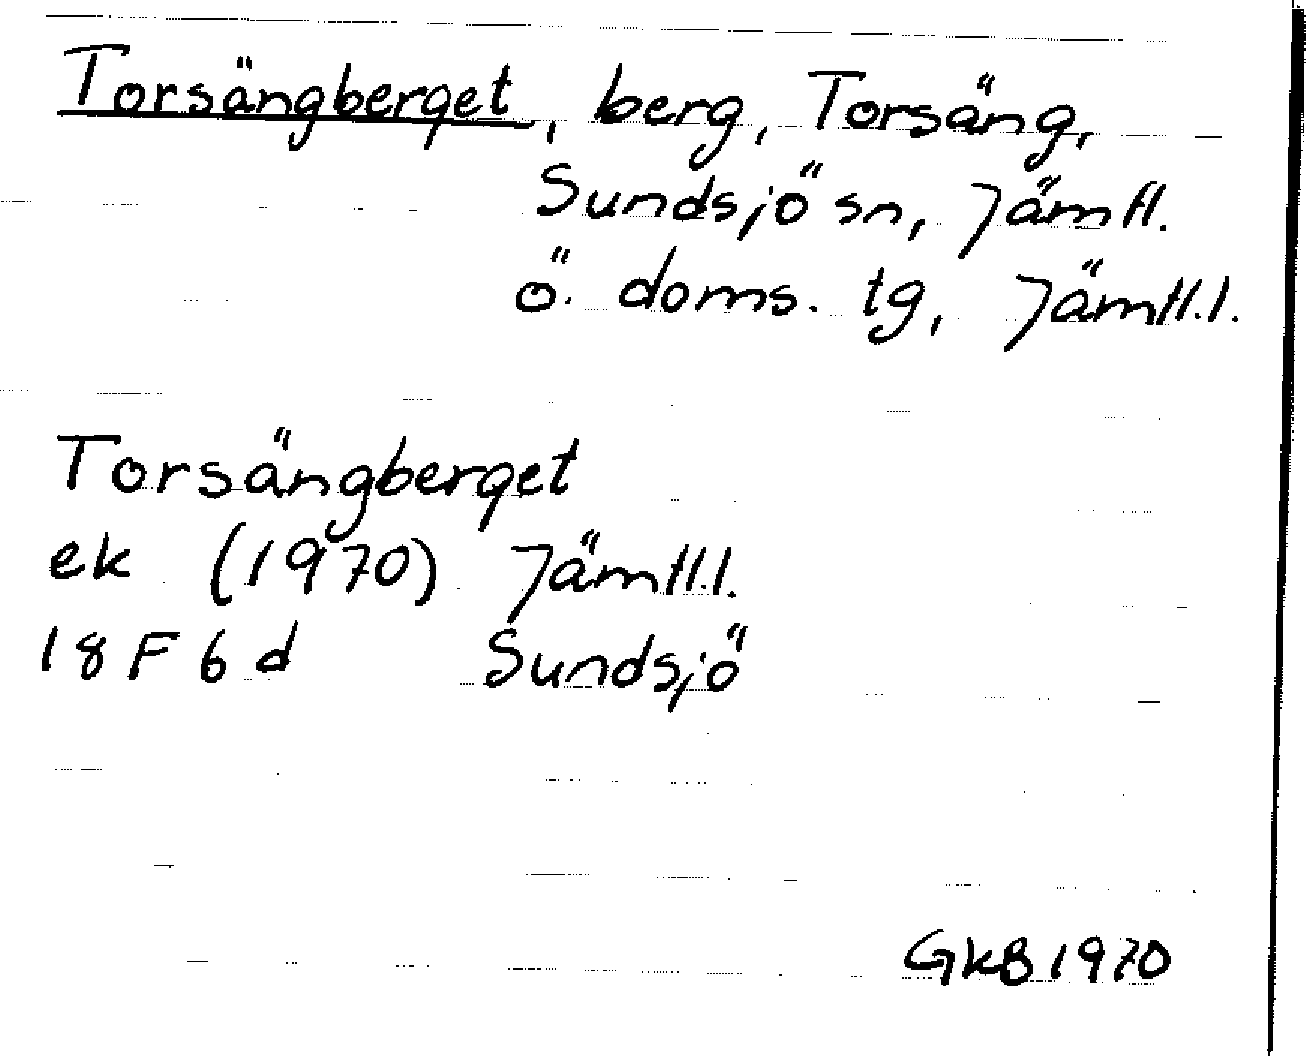 Torsängberget, berg, Torsäng,
Sundsjö sn, Jämtl.
ö. doms. tg, Jämtl.l.
Torsängberget
ek (1970) Jämtl.l.
18 F 6 d Sundsjö
GKB 1970